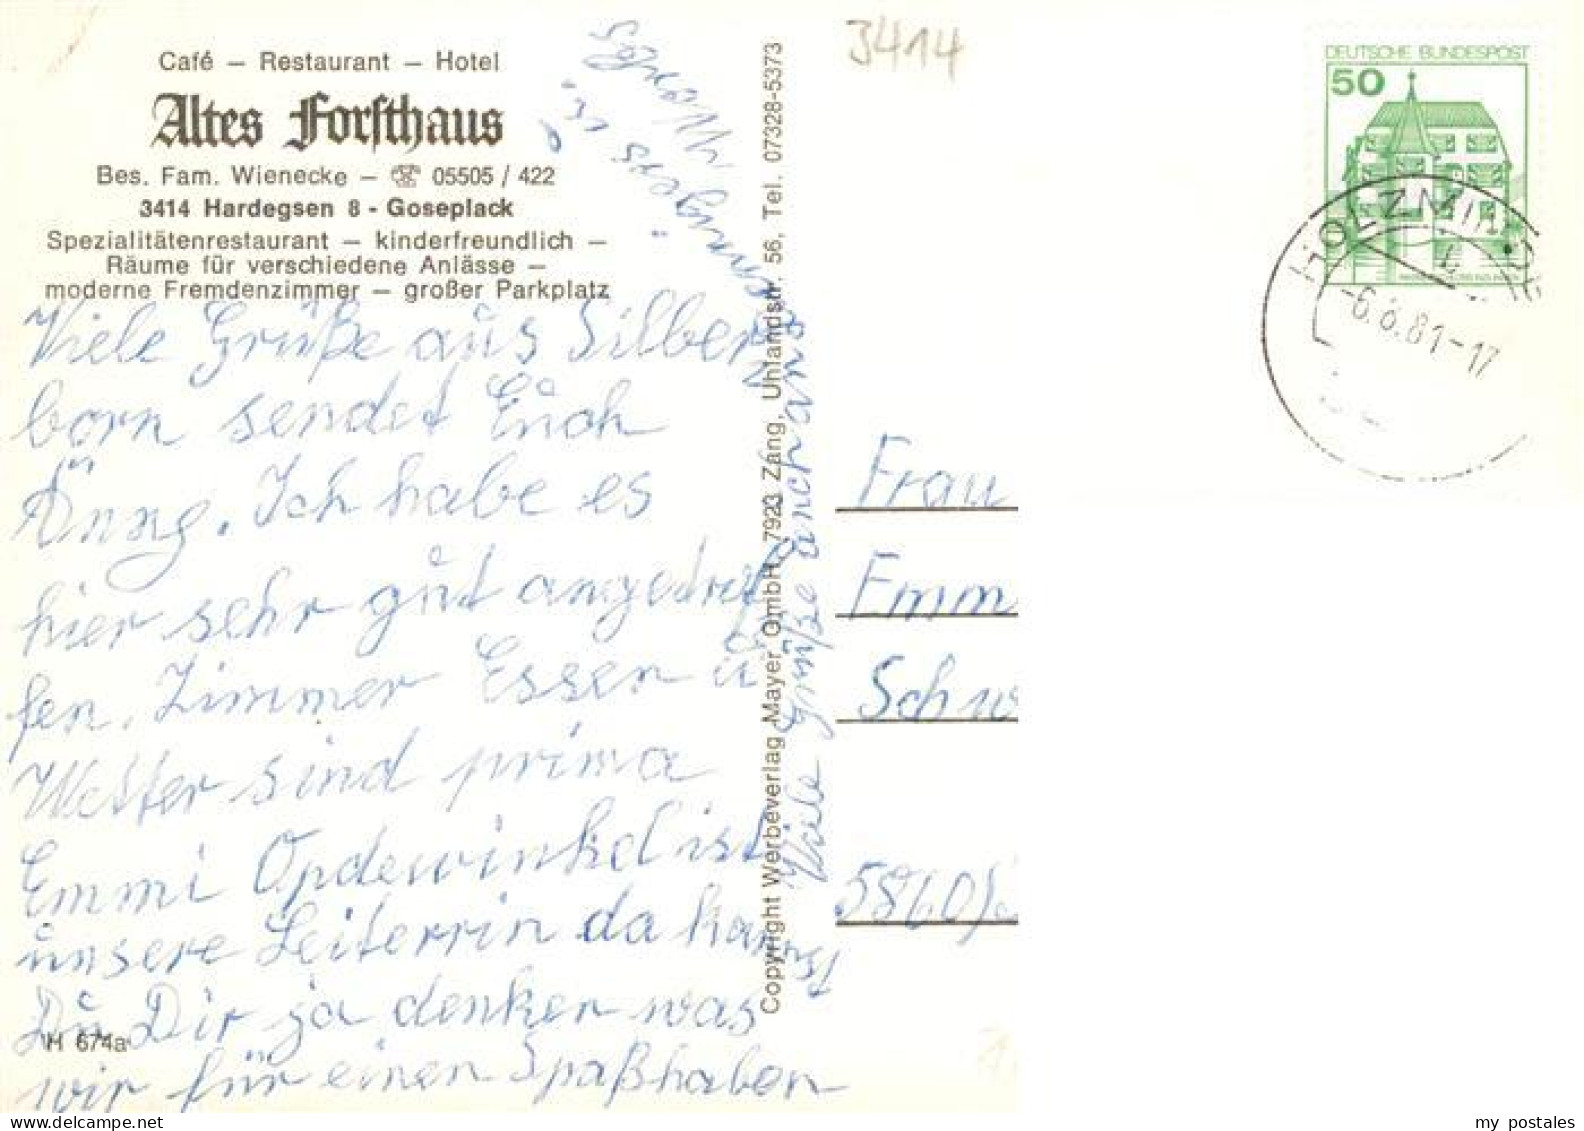 Café – Restaurant – Hotel
Altes Forsthaus
Bes. Fam. Wienecke – ☎ 05505 / 422
3414 Hardegsen 8 - Goseplack
Spezialitätenrestaurant – kinderfreundlich –
Räume für verschiedene Anlässe –
moderne Fremdenzimmer – großer Parkplatz
Viele Grüße aus Silber
born sendet Euch
Änne. Ich habe es
hier sehr gut angetrof
fen. Zimmer Essen u
Wetter sind prima
Emmi Opdewinkel ist
unsere Leiterrin da kannst
Du Dir ja denken was
wir für einen Spaß haben
H 674a
Viele Grüße auch an
Copyright Werbeverlag Mayer GmbH, 7923 Zang, Uhlandstr. 56, Tel. 07328-5373
3414
DEUTSCHE BUNDESPOST
50
HOLZMIND
-6.8.81-17
Frau
Emm
Schw
5860
my postales